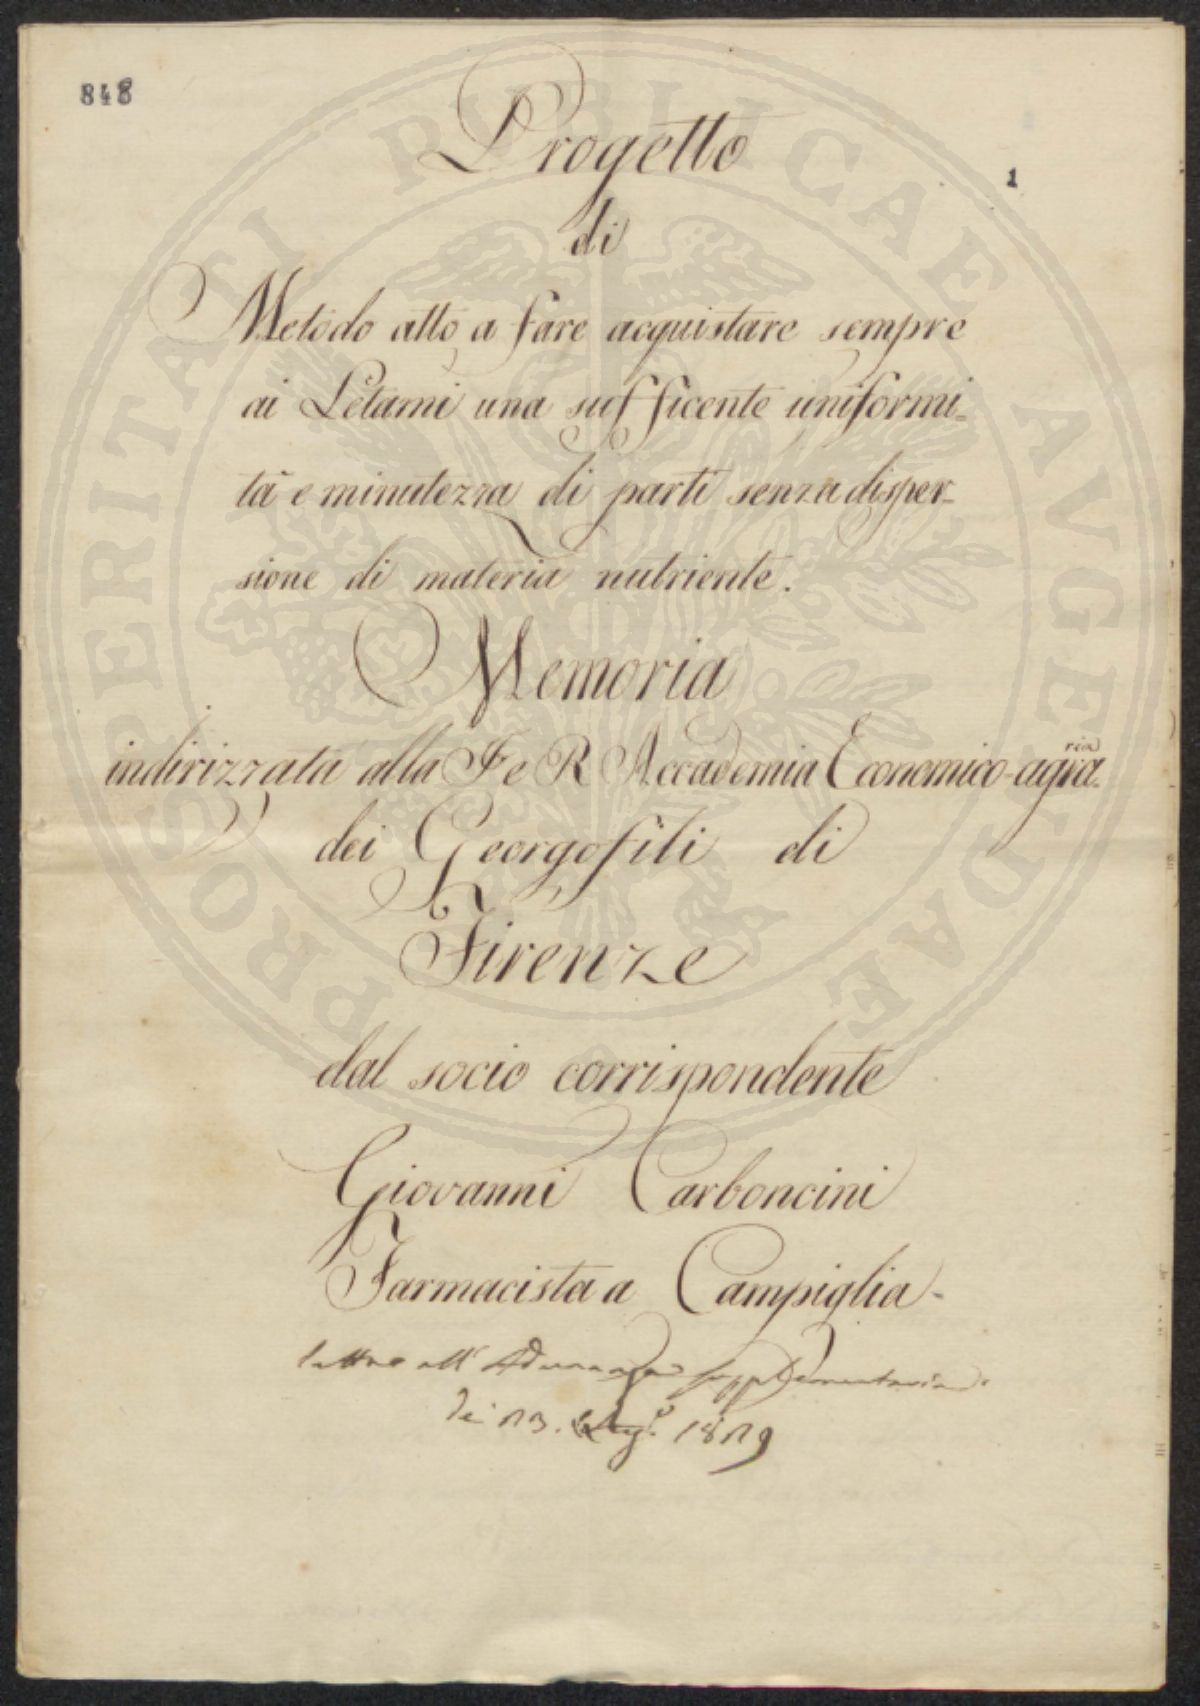 848
1
Progetto
di
Metodo atto a fare acquistare sempre
ai Letami una sufficente uniformi-
tà e minutezza di parti senza disper-
sione di materia nutriente.
Memoria
indirizzata alla I e R Accademia Economico-agra-
ria
dei Georgofili di
Firenze
dal socio corrispondente
Giovanni Carboncini
Farmacista a Campiglia.
all' Adunanza supplementaria
de'
PROSPERITATI PUBLICAE AVGENDAE